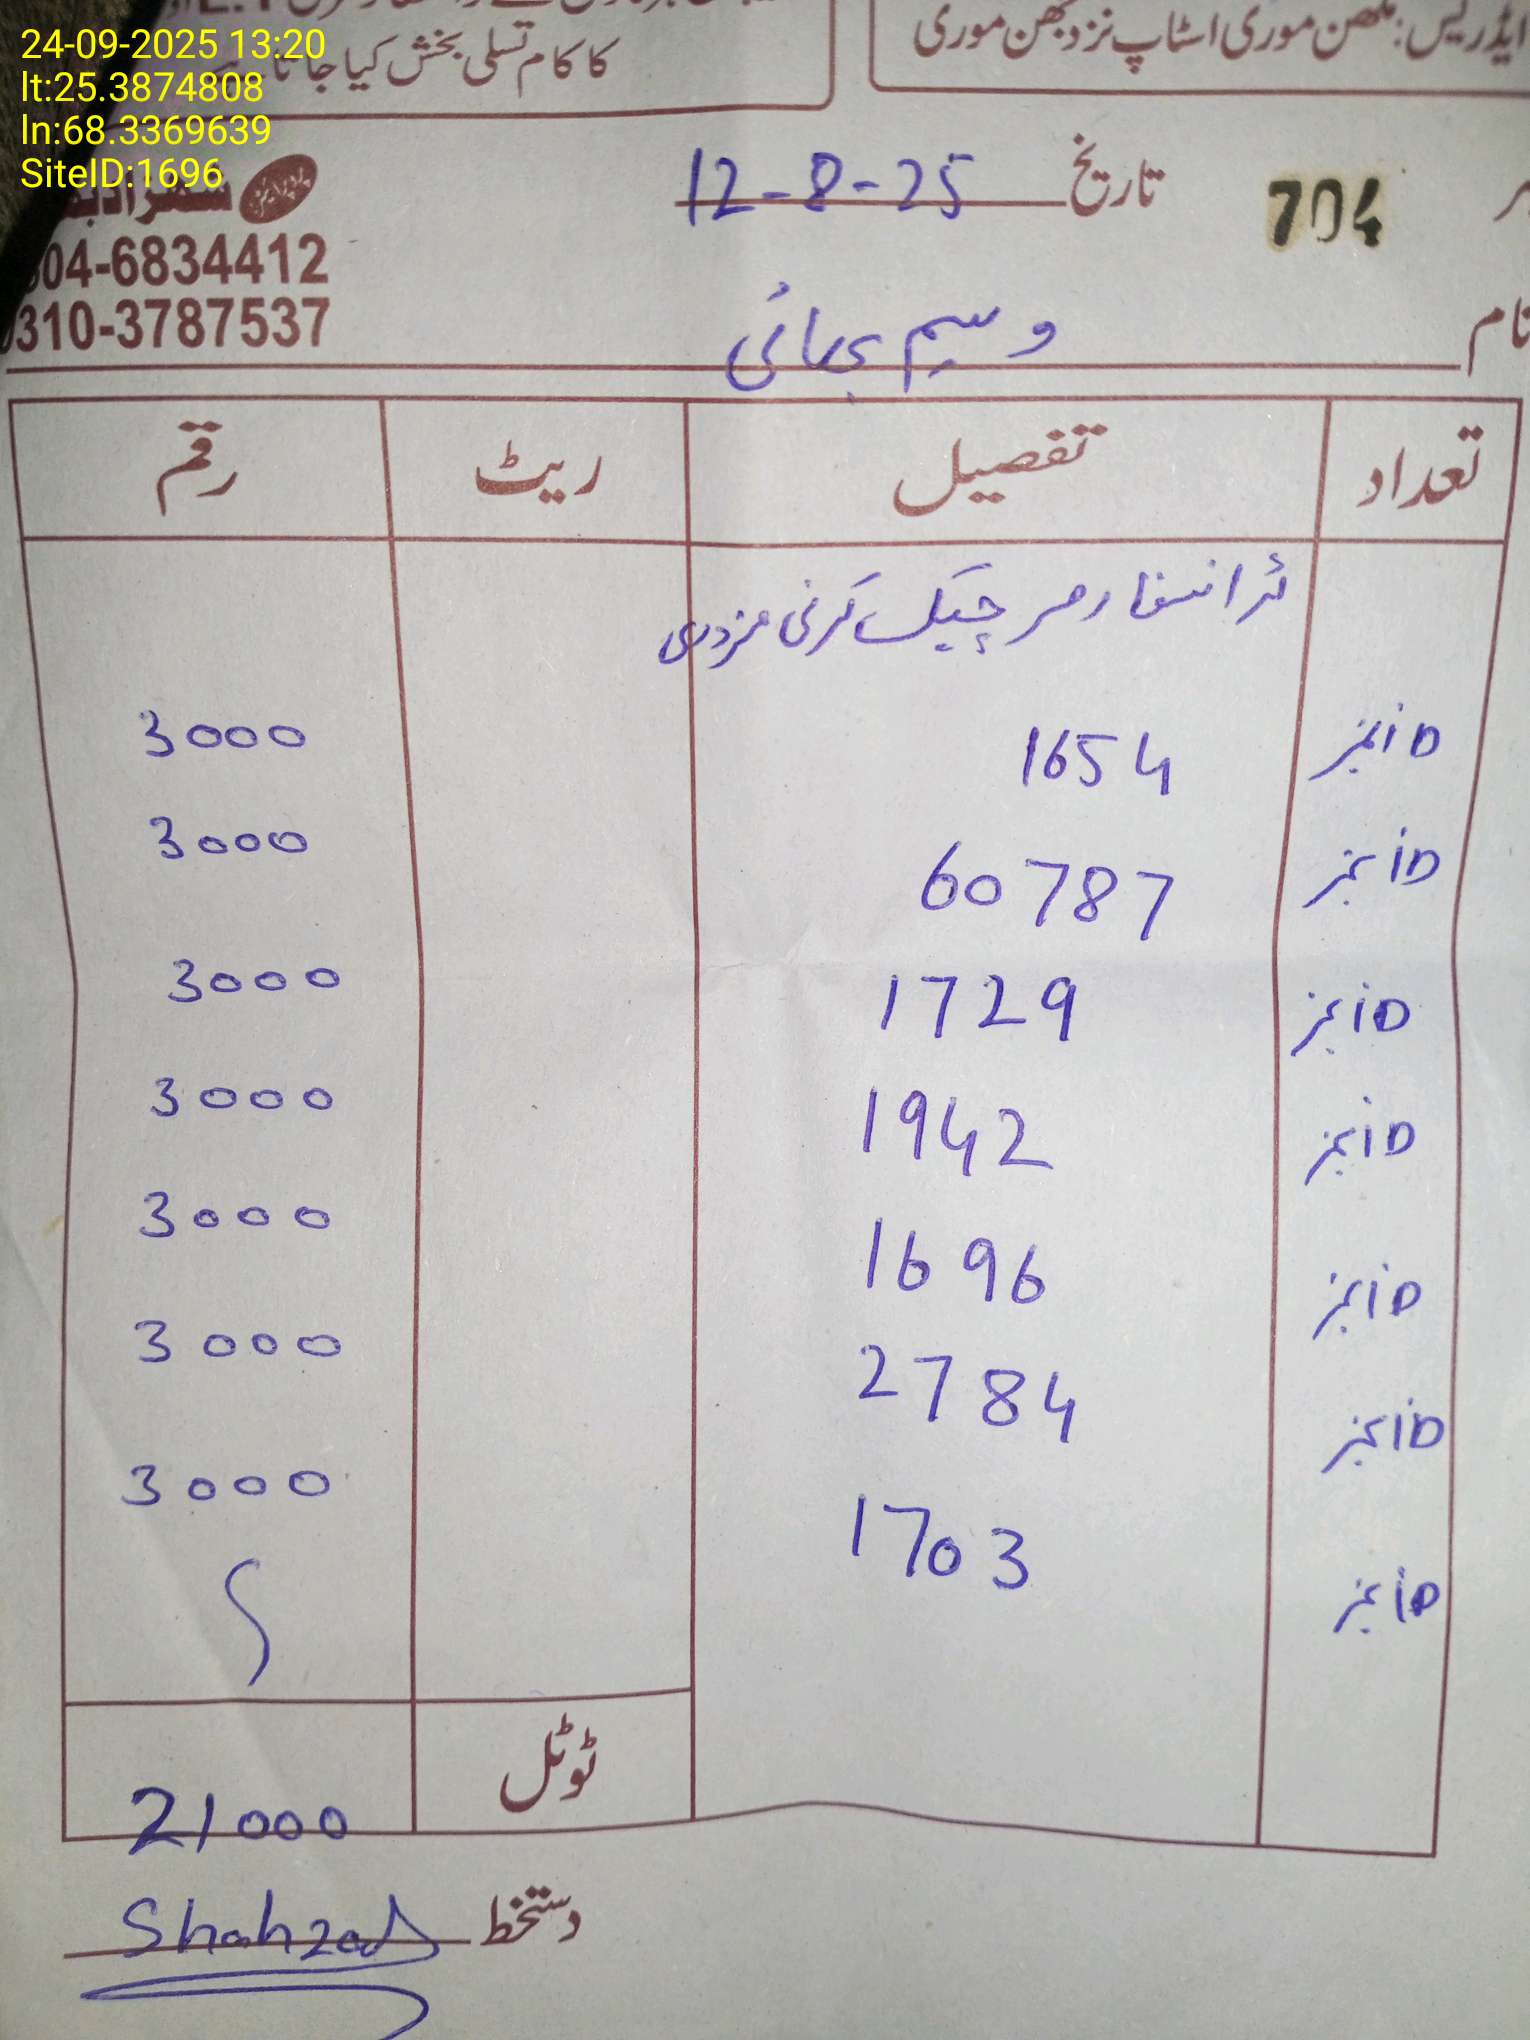 24-09-2025 13:20
lt:25.3874808
ln:68.3369639
SiteID:1696
ایڈریس: مکھن موری اسٹاپ نزد بھن موری
کا کام تسلی بخش کیا جاتا
704
تاریخ 12-8-25
04-6834412
0310-3787537
نام وسیم بھائی
تعداد تفصیل ریٹ رقم
ٹرانسفارمر چیک کرنی مزدری
ID نمبر 1654 3000
ID نمبر 60787 3000
ID نمبر 1729 3000
ID نمبر 1942 3000
ID نمبر 1696 3000
ID نمبر 2784 3000
ID نمبر 1703 3000
ٹوٹل 21000
دستخط Shahzad